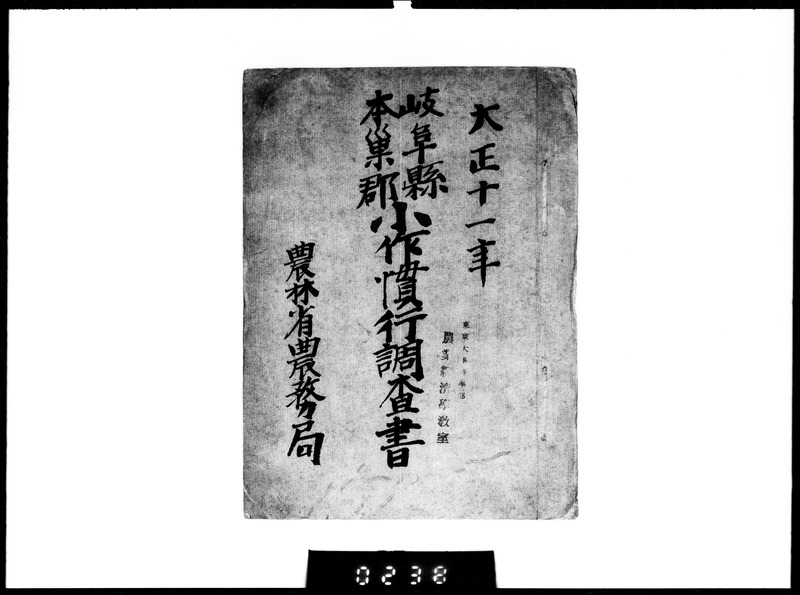 大正十一年
岐阜縣
本巣郡
小作慣行調査書
農林省農務局
東京大學農學部
農業經濟學教室
0238